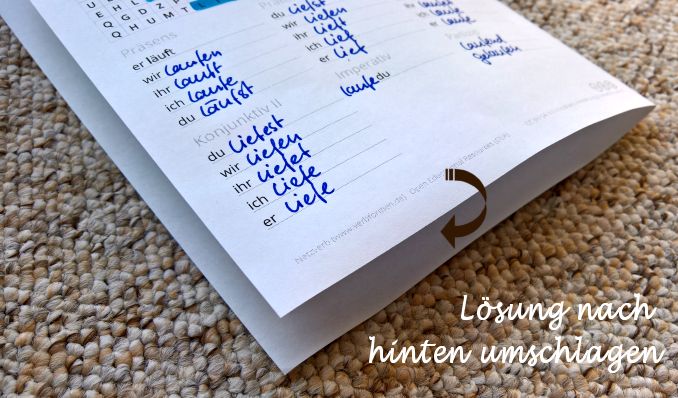 Q G D Z P
Q H U M T
Präsens
er läuft
wir laufen
ihr lauft
ich laufe
du läufst
Konjunktiv II
du liefest
wir liefen
ihr liefet
ich liefe
er liefe
du liefst
wir liefen
ihr lieft
ich lief
er lief
Imperativ
laufe du
laufend
gelaufen
Netzverb (www.verbformen.de) Open Educational Resources (OER)
Lösung nach
hinten umschlagen